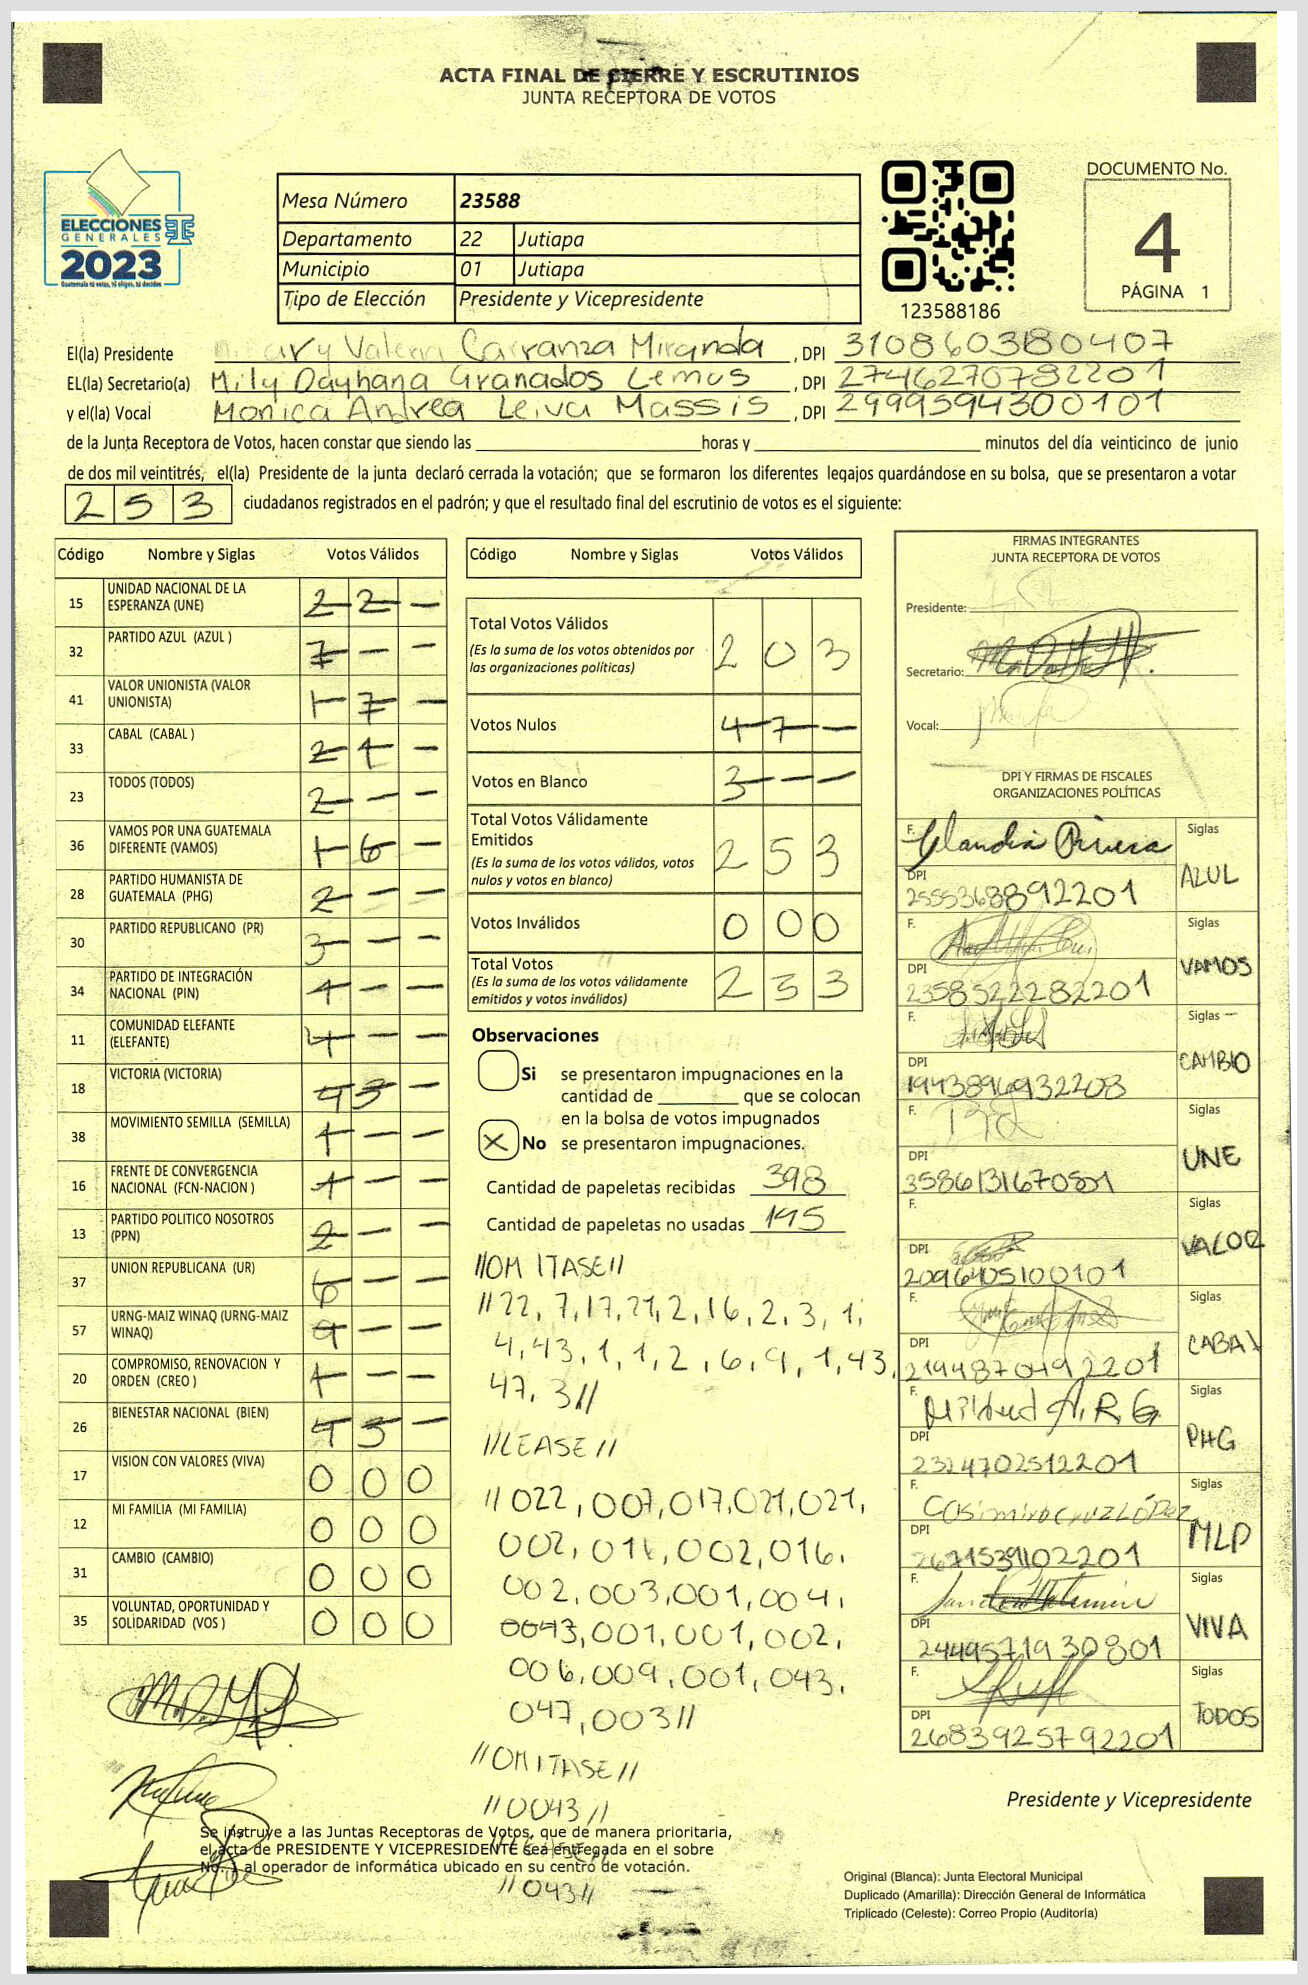 ACTA FINAL DE CIERRE Y ESCRUTINIOS
JUNTA RECEPTORA DE VOTOS
ELECCIONES
GENERALES
2023
Guatemala tú votas, tú eliges, tú decides
Mesa Número 23588
Departamento 22 Jutiapa
Municipio 01 Jutiapa
Tipo de Elección Presidente y Vicepresidente
123588186
DOCUMENTO No.
4
PÁGINA 1
El(la) Presidente Valeria Carranza Miranda , DPI 3108603180407
EL(la) Secretario(a) Mily Dayhana Granados Lemus , DPI 2746270782201
y el(la) Vocal Monica Andrea Leiva Massis , DPI 2999594300101
de la Junta Receptora de Votos, hacen constar que siendo las horas y minutos del día veinticinco de junio
de dos mil veintitrés, el(la) Presidente de la junta declaró cerrada la votación; que se formaron los diferentes legajos guardándose en su bolsa, que se presentaron a votar
253 ciudadanos registrados en el padrón; y que el resultado final del escrutinio de votos es el siguiente:
Código Nombre y Siglas Votos Válidos
15 UNIDAD NACIONAL DE LA ESPERANZA (UNE) 2 2 -
32 PARTIDO AZUL (AZUL ) 7 - -
41 VALOR UNIONISTA (VALOR UNIONISTA) 1 7 -
33 CABAL (CABAL ) 2 1 -
23 TODOS (TODOS) 2 - -
36 VAMOS POR UNA GUATEMALA DIFERENTE (VAMOS) 1 6 -
28 PARTIDO HUMANISTA DE GUATEMALA (PHG) 2 - -
30 PARTIDO REPUBLICANO (PR) 3 - -
34 PARTIDO DE INTEGRACIÓN NACIONAL (PIN) 1 - -
11 COMUNIDAD ELEFANTE (ELEFANTE) 4 - -
18 VICTORIA (VICTORIA) 4 3 -
38 MOVIMIENTO SEMILLA (SEMILLA) 1 - -
16 FRENTE DE CONVERGENCIA NACIONAL (FCN-NACION ) 1 - -
13 PARTIDO POLITICO NOSOTROS (PPN) 2 - -
37 UNION REPUBLICANA (UR) 6 - -
57 URNG-MAIZ WINAQ (URNG-MAIZ WINAQ) 9 - -
20 COMPROMISO, RENOVACION Y ORDEN (CREO ) 1 - -
26 BIENESTAR NACIONAL (BIEN) 4 3 -
17 VISION CON VALORES (VIVA) 0 0 0
12 MI FAMILIA (MI FAMILIA) 0 0 0
31 CAMBIO (CAMBIO) 0 0 0
35 VOLUNTAD, OPORTUNIDAD Y SOLIDARIDAD (VOS ) 0 0 0
Código Nombre y Siglas Votos Válidos
Total Votos Válidos 2 0 3
(Es la suma de los votos obtenidos por
las organizaciones políticas)
Votos Nulos 4 7 -
Votos en Blanco 3 - -
Total Votos Válidamente
Emitidos 2 5 3
(Es la suma de los votos válidos, votos
nulos y votos en blanco)
Votos Inválidos 0 0 0
Total Votos 2 5 3
(Es la suma de los votos válidamente
emitidos y votos inválidos)
Observaciones
Si se presentaron impugnaciones en la
cantidad de que se colocan
en la bolsa de votos impugnados
X No se presentaron impugnaciones.
Cantidad de papeletas recibidas 398
Cantidad de papeletas no usadas 145
//OMITASE//
//22, 7,17,21,2,16,2,3,1,
4,43,1,1,2,6,9,1,43,
47,3//
//LEASE//
//022,007,017,021,021,
002,016,002,016,
002,003,001,004,
0043,001,001,002,
006,009,001,043,
047,003//
//OMITASE//
//0043//
//LEASE//
//043//
FIRMAS INTEGRANTES
JUNTA RECEPTORA DE VOTOS
Presidente:
Secretario:
Vocal:
DPI Y FIRMAS DE FISCALES
ORGANIZACIONES POLÍTICAS
F. Claudia Rivera Siglas
DPI 2555368892201 AZUL
F. Siglas
DPI 2358522282201 VAMOS
F. Siglas
DPI 1943896932203 CAMBIO
F. Siglas
DPI 3586131670501 UNE
F. Siglas
DPI 2096405100101 VALOR
F. Siglas
DPI 2194870492201 CABAL
F. Mildred A. R. G. Siglas
DPI 2324702512201 PHG
F. Casimiro Cruz López Siglas
DPI 2671539102201 MLP
F. Siglas
DPI 2449571930801 VIVA
F. Siglas
DPI 2683925792201 TODOS
Presidente y Vicepresidente
Se instruye a las Juntas Receptoras de Votos, que de manera prioritaria,
el acta de PRESIDENTE Y VICEPRESIDENTE sea entregada en el sobre
No. 1 al operador de informática ubicado en su centro de votación.
Original (Blanca): Junta Electoral Municipal
Duplicado (Amarilla): Dirección General de Informática
Triplicado (Celeste): Correo Propio (Auditoría)